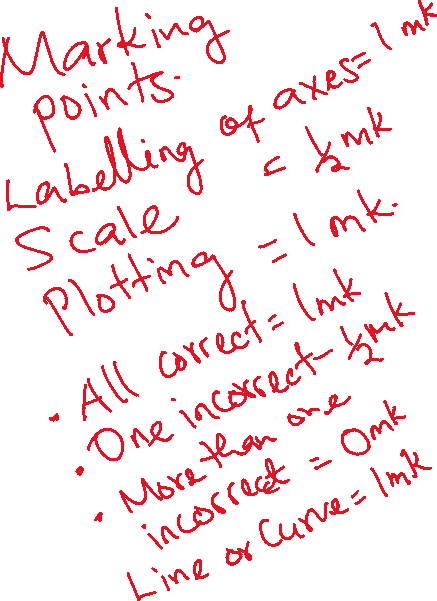 Marking
points.
Labelling of axes = 1 mk
Scale = ½ mk
Plotting = 1 mk.
• All correct = 1mk
• One incorrect - ½ mk
• More than one
incorrect = 0mk
Line or Curve = 1mk